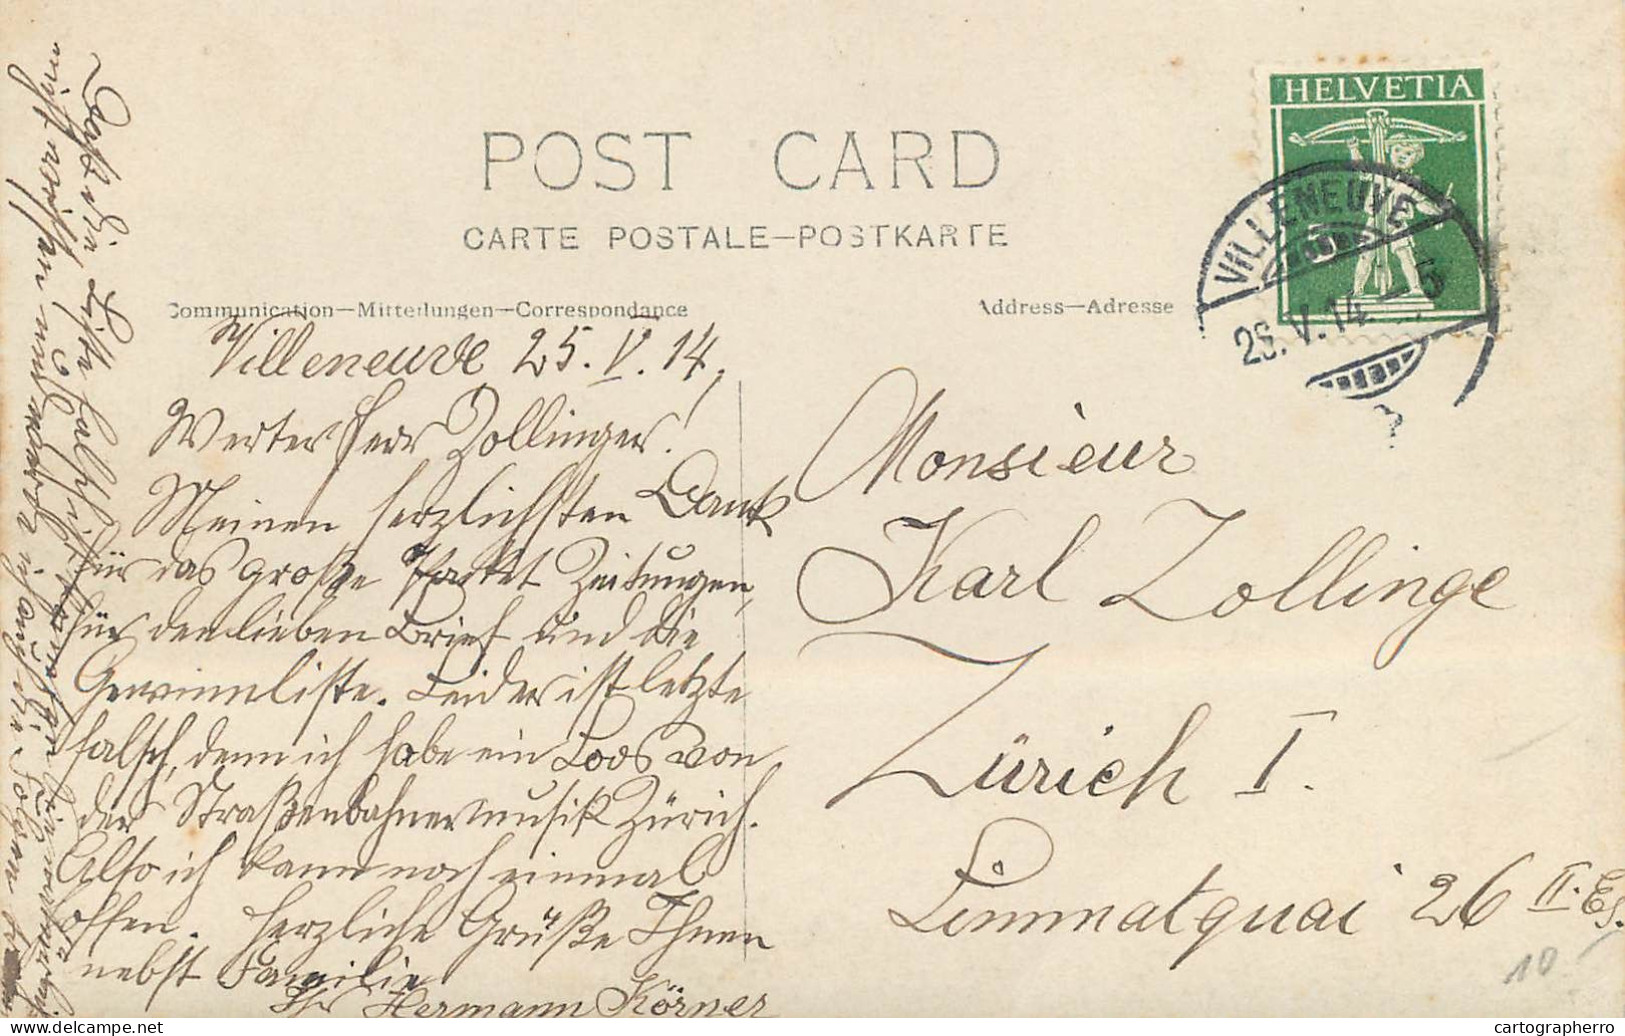 POST CARD
CARTE POSTALE—POSTKARTE
Communication—Mitteilungen—Correspondance
Address—Adresse
HELVETIA
5
VILLENEUVE
V.14.–5
Villeneuve 25. V. 14.
Werter Herr Zollinger!
Meinen herzlichsten Dank
für das große Packet Zeitungen,
für den lieben Brief und die
Gewinnliste. Leider ist letzte
falsch, denn ich habe ein Loos von
der Straßenbahnermusik Zürich.
Also ich kann noch einmal
hoffen. Herzliche Grüße Ihnen
nebst Familie
Ihr Hermann Körner
Daß die Liste falsch
Monsieur
Karl Zollinge
Zürich I.
Limmatquai 26 II. Es.
10
cartographerro